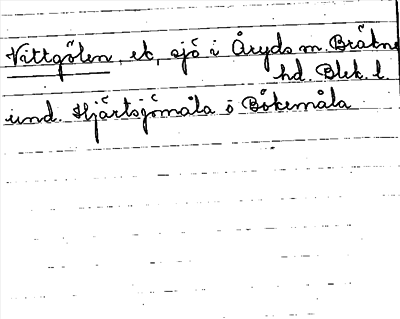 Vittgölen, ek, sjö i Åryds m. Bräkne
hd. Blek. l.
und. Hjärtsjömåla ö Bökemåla